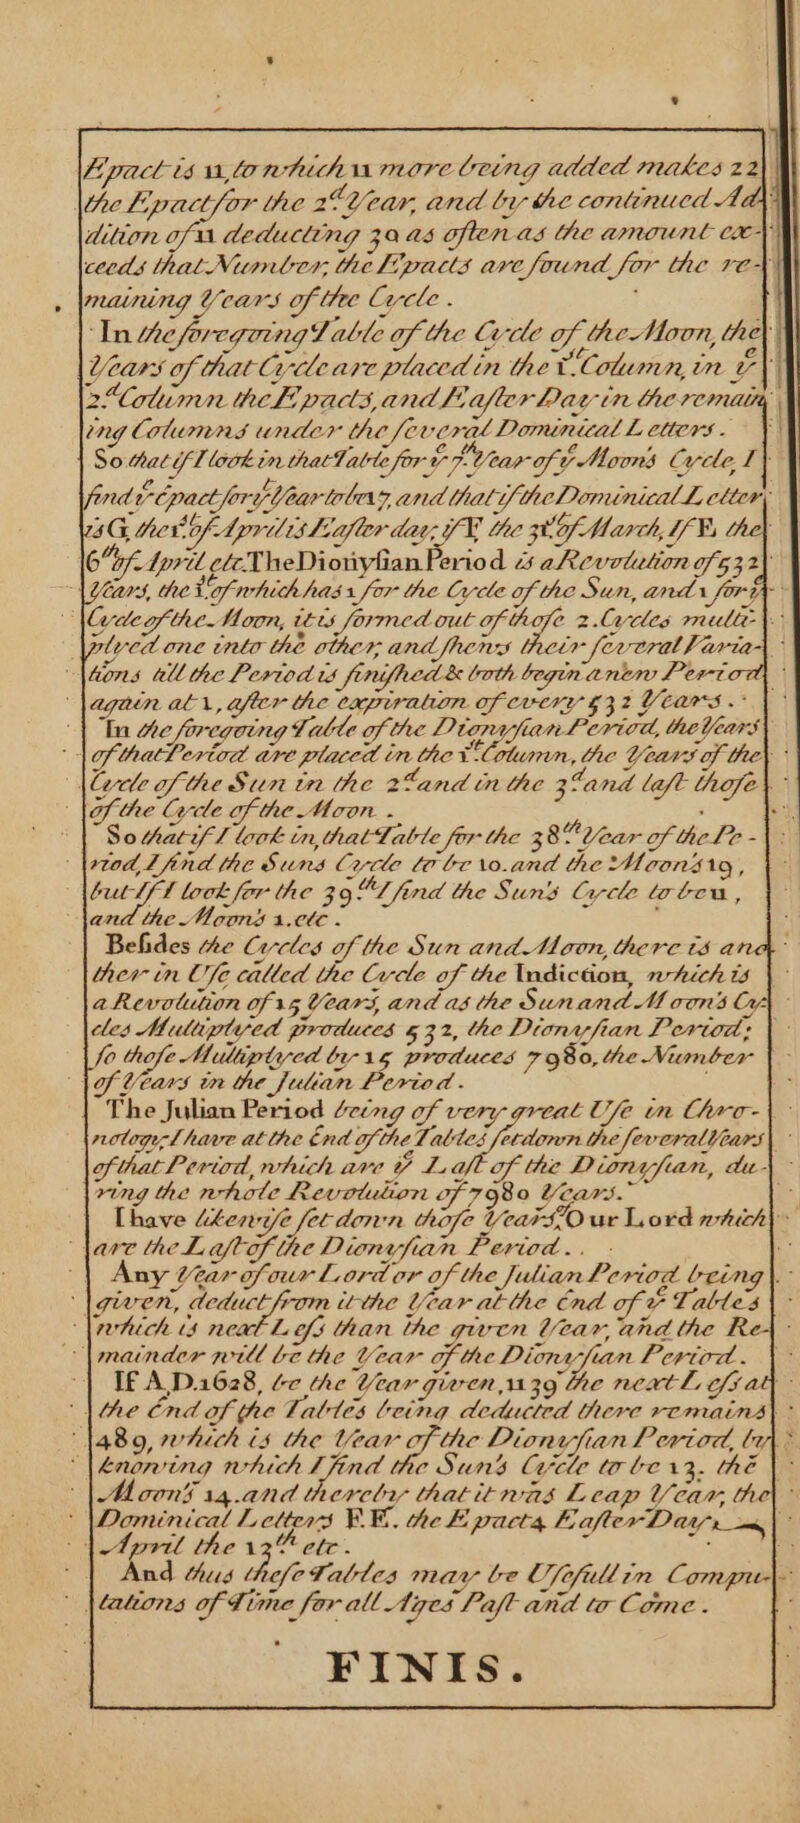 Epact is 11, to which 11 more being added makes 22
the Epact for the 2.d Year, and by the continued Ad-
dition of 11 deducting 30 as often as the amount ex-
ceeds that Number, the Epacts are found for the re-
maining Years of the Cycle.
In the foregoing Table of the Cycle of the Moon, the
Years of that Cycle are placed in the 1.st Column, in ye
2.d Column the Epacts, and Easter Day in the remain
ing Columns under the several Dominical Letters.
So that if I look in that Table for ye 7.th Year of ye Moon's Cycle, I
find ye Epact for ye Year to be 17, and that if the Dominical Letter
is G, the 1.st of April is Easter day; if F, the 31.st of March, If E, the
6.th of April etc. The Dionysian Period is a Revolution of 532
Years, the 1.st of which has 1 for the Cycle of the Sun, and 1 for ye
Cycle of the Moon, it is formed out of those 2. Cycles multi-
plyed one into the other, and shews their several Varia-
tions till the Period is finished & both begin a new Period
again at 1, after the expiration of every 532 Years.
In the foregoing Table of the Dionysian Period, the Years
of that Period are placed in the 1.st Column, the Years of the
Cycle of the Sun in the 2.d and in the 3.d and last those
of the Cycle of the Moon.
So that if I look in that Table for the 38.th Year of the Pe-
riod, I find the Suns Cycle to be 10. and the Moon's 19,
but If I look for the 39.th I find the Sun's Cycle to be 11,
and the Moon's 1. etc.
Besides the Cycles of the Sun and Moon, there is ano
ther in Use called the Cycle of the Indiction, which is
a Revolution of 15 Years, and as the Sun and Moon's Cy-
cles Multiplyed produces 532, the Dionysian Period;
so those Multiplyed by 15 produces 7980, the Number
of Years in the Julian Period.
The Julian Period being of very great Use in Chro-
nology; I have at the End of the Tables set down the several Years
of that Period, which are ye Last of the Dionysian, du-
ring the whole Revolution of 7980 Years.
I have likewise set down those Years of Our Lord which
are the Last of the Dionysian Period..
Any Year of our Lord or of the Julian Period being
given, deduct from it the Year at the End of ye Tables
which is next Less than the given Year, and the Re-
mainder will be the Year of the Dionysian Period.
If A.D. 1628, be the Year given, 1139 the next Less at
the End of the Tables being deducted there remains
489, which is the Year of the Dionysian Period, by
knowing which I find the Sun's Cycle to be 13. the
Moon's 14. and thereby that it was Leap Year, the
Dominical Letters F.E. the Epact 4 Easter Day
April the 13th etc.
And thus these Tables may be Usefull in Compu-
tations of Time for all Ages Past and to Come.
FINIS.